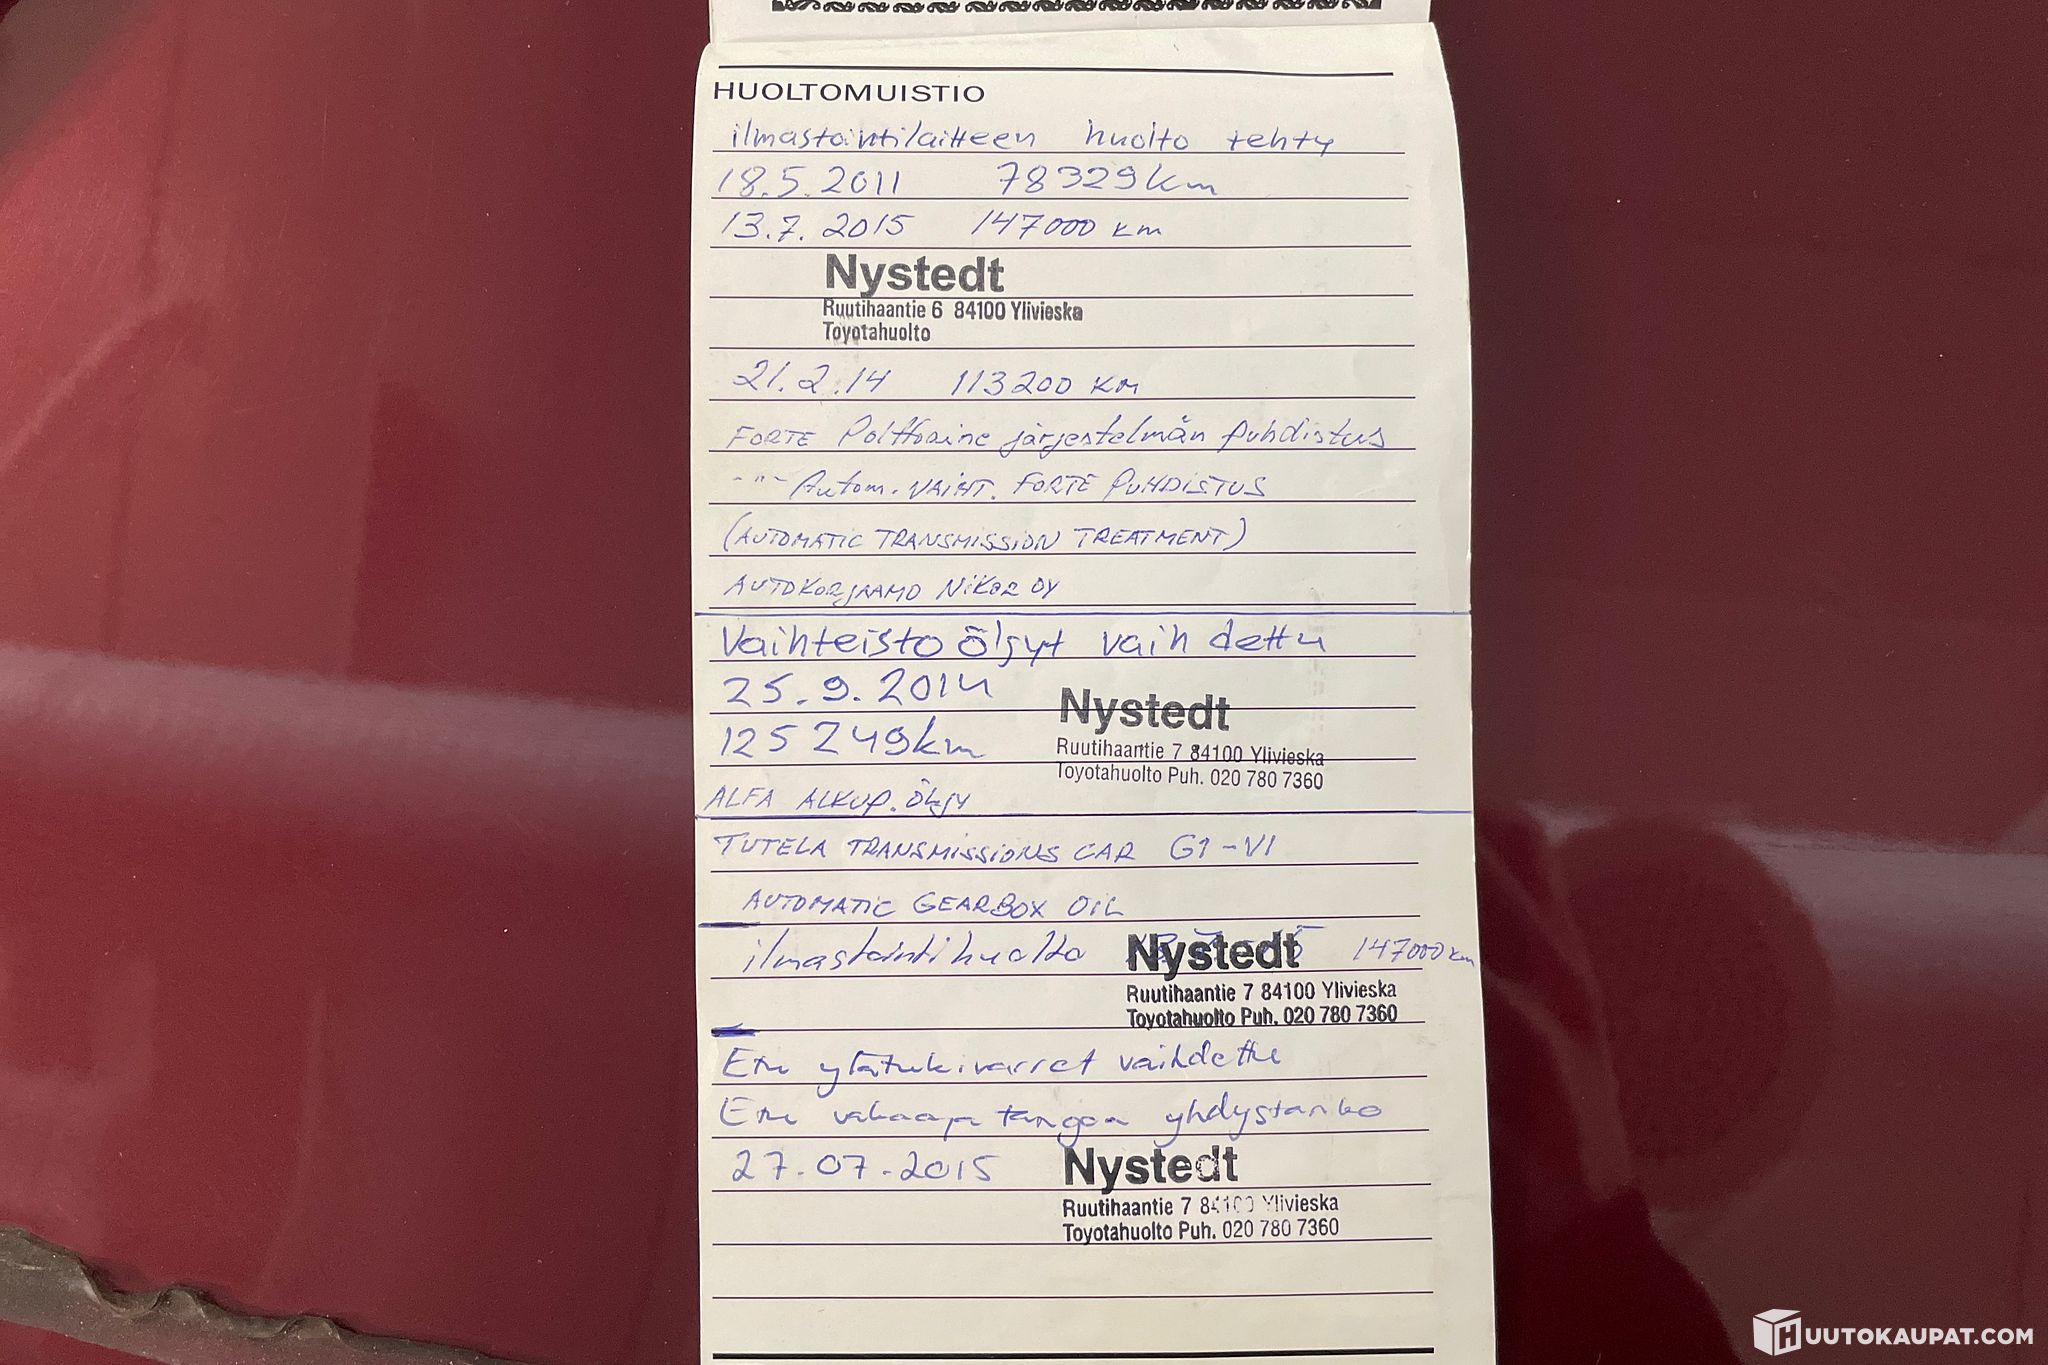 HUOLTOMUISTIO
ilmastointilaitteen huolto tehty
18.5.2011 78329km
13.7.2015 147000 km
Nystedt
Ruutihaantie 6 84100 Ylivieska
Toyotahuolto
21.2.14 113200 KM
FORTE Polttoaine järjestelmän puhdistus
-"- Autom. VAIHT. FORTE PUHDISTUS
(AUTOMATIC TRANSMISSION TREATMENT)
AUTOKORJAAMO NIKOR OY
Vaihteisto öljyt vaihdettu
25.9.2014
125249km
Nystedt
Ruutihaantie 7 84100 Ylivieska
Toyotahuolto Puh. 020 780 7360
ALFA ALKUP. ÖLJY
TUTELA TRANSMISSIONS CAR G1-VI
AUTOMATIC GEARBOX OIL
ilmastointihuolto 147000 km
Nystedt
Ruutihaantie 7 84100 Ylivieska
Toyotahuolto Puh. 020 780 7360
Etu ylätukivarret vaihdettu
Etu vakaaja tangon yhdystanko
27.07.2015
Nystedt
Ruutihaantie 7 84100 Ylivieska
Toyotahuolto Puh. 020 780 7360
HUUTOKAUPAT.COM